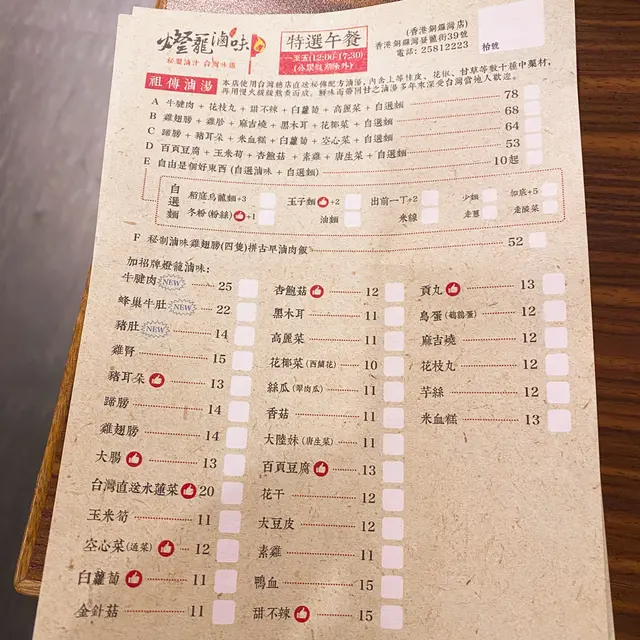 燈龍滷味
秘製滷汁 台灣味道
特選午餐
一至五(12:00-17:30)
(公眾假期除外)
(香港銅鑼灣店)
香港銅鑼灣景隆街39號
電話: 25812223
枱號
祖傳滷湯
本店使用台灣總店直送秘傳配方滷湯,內含上等桂皮、花椒、甘草等數十種中藥材,
再用慢火緩緩熬煮而成,鮮味而帶回甘之滷湯多年來深受台灣當地人歡迎。
A 牛腱肉 + 花枝丸 + 甜不辣 + 白蘿蔔 + 高麗菜 + 自選麵 78
B 雞翅膀 + 雞胗 + 麻吉燒 + 黑木耳 + 花椰菜 + 自選麵 68
C 蹄膀 + 豬耳朵 + 米血糕 + 白蘿蔔 + 空心菜 + 自選麵 64
D 百頁豆腐 + 玉米筍 + 杏鮑菇 + 素雞 + 唐生菜 + 自選麵 53
E 自由是個好東西 (自選滷味 + 自選麵) 10起
自選麵
稻庭烏龍麵+3 玉子麵+2 出前一丁+2 少麵 加底+5
冬粉(粉絲)+1 油麵 米線 走蔥 走酸菜
F 秘制滷味雞翅膀(四隻)拼古早滷肉飯 52
加招牌燈龍滷味:
牛腱肉 NEW 25
蜂巢牛肚 NEW 22
豬肚 NEW 14
雞腎 15
豬耳朵 13
蹄膀 14
雞翅膀 14
大腸 13
台灣直送水蓮菜 20
玉米筍 11
空心菜(通菜) 12
白蘿蔔 11
金針菇 11
杏鮑菇 12
黑木耳 11
高麗菜 11
花椰菜(西蘭花) 10
絲瓜(翠肉瓜) 11
香菇 11
大陸妹(唐生菜) 11
百頁豆腐 13
花干 12
大豆皮 12
素雞 11
鴨血 15
甜不辣 15
貢丸 13
鳥蛋(鵪鶉蛋) 12
麻吉燒 12
花枝丸 12
芋絲 12
米血糕 13